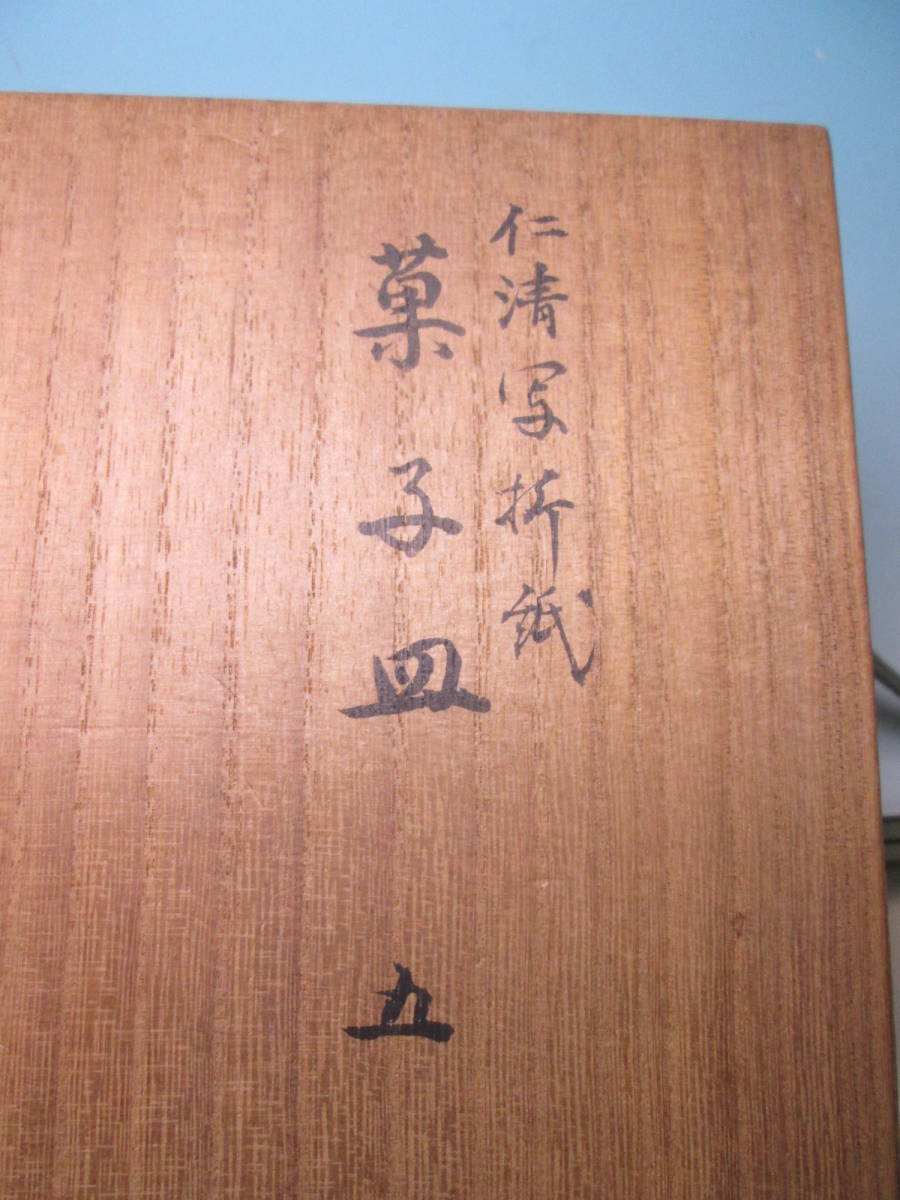 仁清写折紙
菓子皿 五